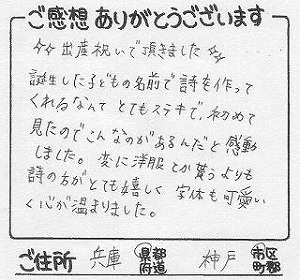 ご感想 ありがとうございます
☆☆ 出産祝いで頂きました ☆☆
誕生した子どもの名前で詩を作って
くれるなんて とてもステキで、初めて
見たのでこんなのがあるんだと 感動
しました。変に洋服とか貰うよりも
詩の方がとても嬉しく 字体も可愛い
く心が温まりました。
ご住所 兵庫 都道府県 神戸 市区町郡